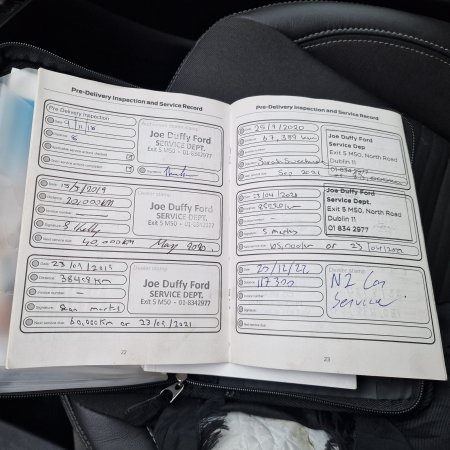 Pre-Delivery Inspection and Service Record
Pre Delivery Inspection
Date: 9/11/18
8
Applicable service actions checked
Signature:
Joe Duffy Ford
SERVICE DEPT.
Exit 5 M50 - 01-8342977
Date: 15/5/2019
Distance: 20,000KM
Invoice number:
Signature: S Kelly
Next service due: 40,000KM May 2020
Joe Duffy Ford
SERVICE DEPT.
Exit 5 M50 - 01-8342977
Dealer stamp
Date: 23/09/2019
Distance: 38408km
Invoice number:
Signature:
Next service due: 60,000km or 23/09/2021
Joe Duffy Ford
SERVICE DEPT.
Exit 5 M50 - 01-8342977
22
Pre-Delivery Inspection and Service Record
Date: 25/9/2020
Sep 2021
Joe Duffy Ford
Service Dep.
Exit 5 M50, North Road
Dublin 11
Date: 23/04/2021
or 23/04/2022
Joe Duffy Ford
Service Dep.
Exit 5 M50, North Road
Dublin 11
01 834 2977
Dealer stamp
Invoice number:
Signature:
Next service due:
N2 Car
Service
23